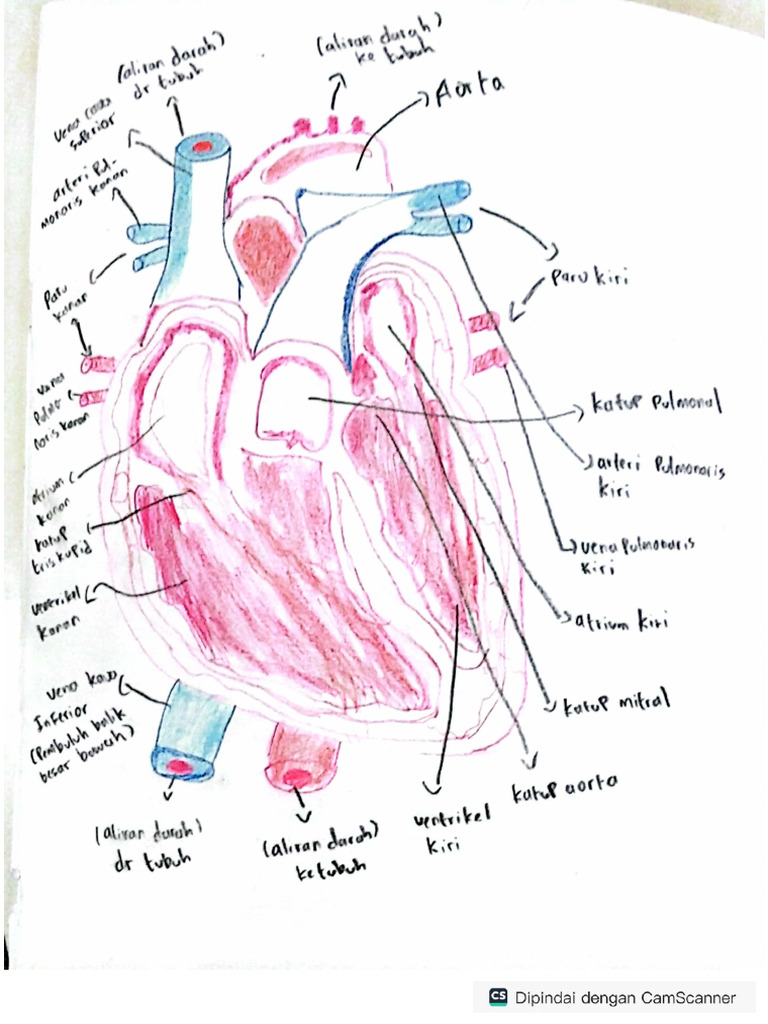 (aliran darah)
dr tubuh
(aliran darah)
ke tubuh
Aorta
vena cava
superior
arteri Pul-
monaris kanan
Paru
kanan
vena
Pulmo
noris kanan
atrium
kanan
katup
triskupid
ventrikel
kanan
vena kava
Inferior
(Pembuluh balik
besar bawah)
(aliran darah)
dr tubuh
(aliran darah)
ke tubuh
ventrikel
kiri
katup aorta
katup mitral
atrium kiri
vena Pulmonaris
kiri
arteri Pulmonaris
kiri
katup Pulmonal
Paru kiri
CS Dipindai dengan CamScanner